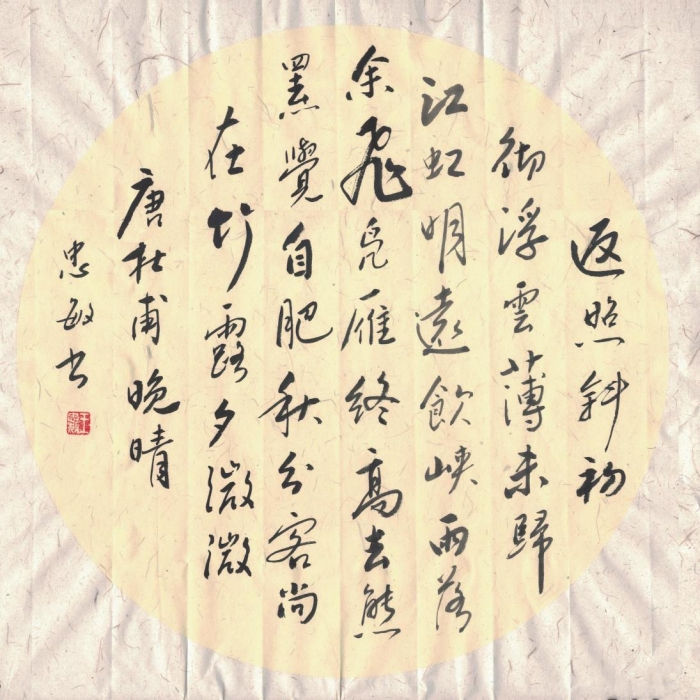 返照斜初
彻浮雲薄未歸
江虹明遠飲峽雨落
余飛凫雁終高去熊
罴覺自肥秋分客尚
在竹露夕微微
唐杜甫晚晴
忠敏书